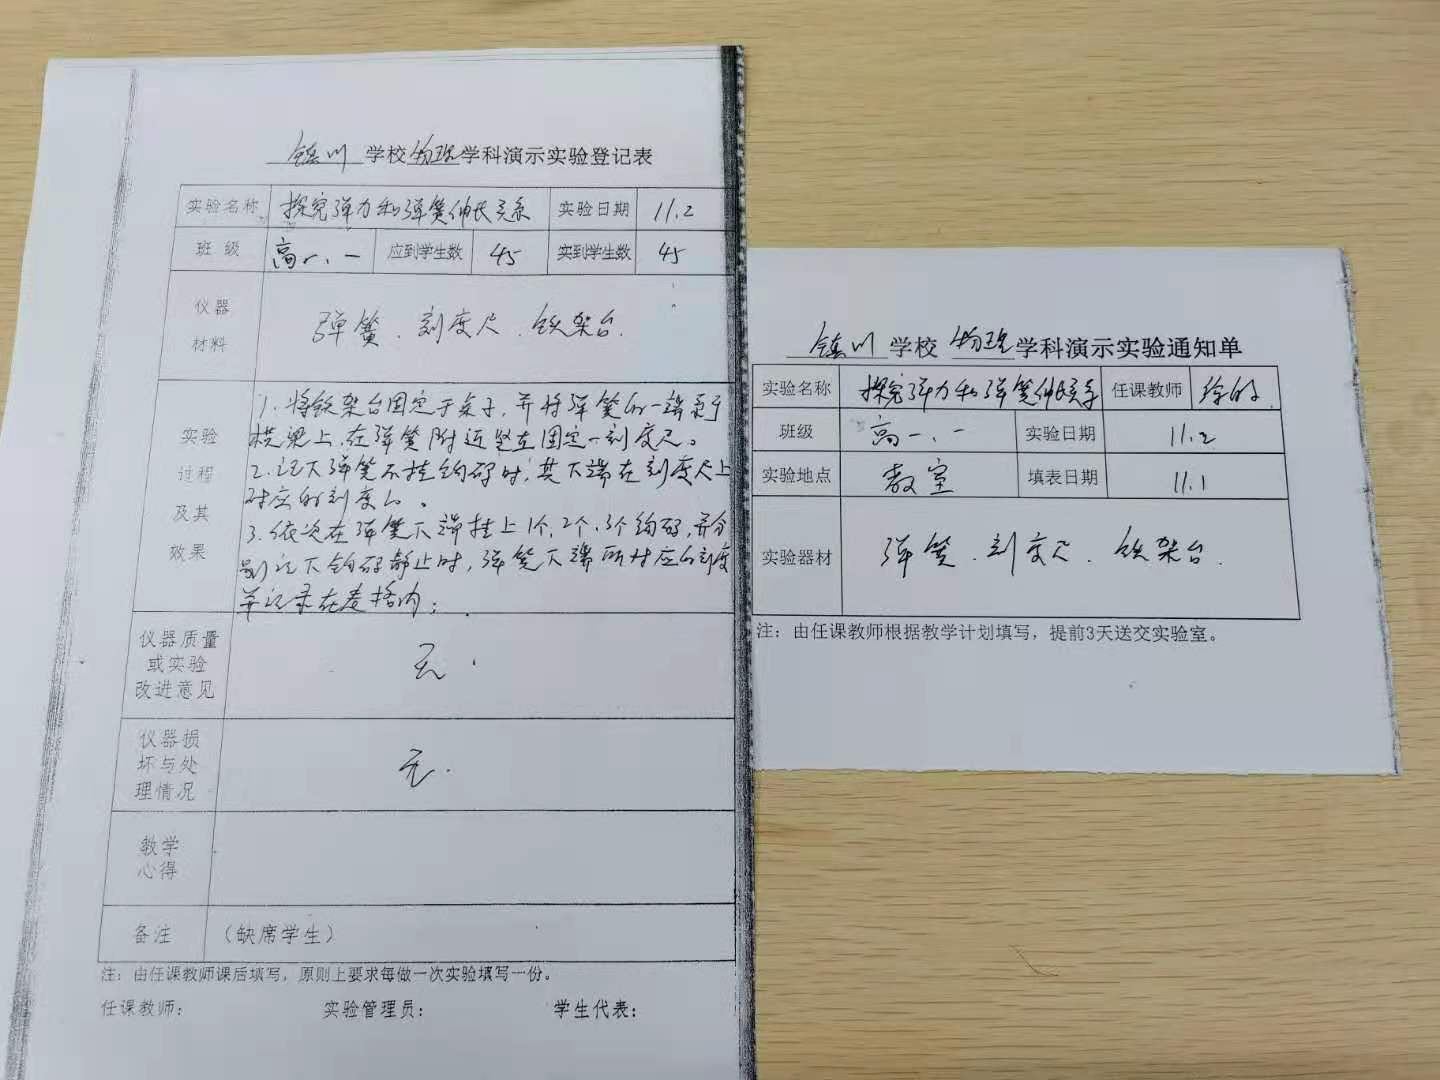 镇川 学校 物理 学科演示实验登记表
实验名称 探究弹力和弹簧伸长关系 实验日期 11.2
班 级 高一、一 应到学生数 45 实到学生数 45
仪器
材料
弹簧．刻度尺．铁架台．
实验
过程
及其
效果
1．将铁架台固定于桌子，并将弹簧的一端系于
横梁上，在弹簧附近竖直固定一刻度尺。
2．记下弹簧不挂钩码时，其下端在刻度尺上
对应的刻度L。
3．依次在弹簧下端挂上1个、2个、3个钩码，并分
别记下钩码静止时，弹簧下端所对应的刻度
并记录在表格内；
仪器质量
或实验
改进意见
无．
仪器损
坏与处
理情况
无．
教学
心得
备注 （缺席学生）
注：由任课教师课后填写，原则上要求每做一次实验填写一份。
任课教师： 实验管理员： 学生代表：
镇川 学校 物理 学科演示实验通知单
实验名称 探究弹力和弹簧伸长关系 任课教师
班级 高一、一 实验日期 11.2
实验地点 教室 填表日期 11.1
实验器材 弹簧．刻度尺．铁架台．
注：由任课教师根据教学计划填写，提前3天送交实验室。